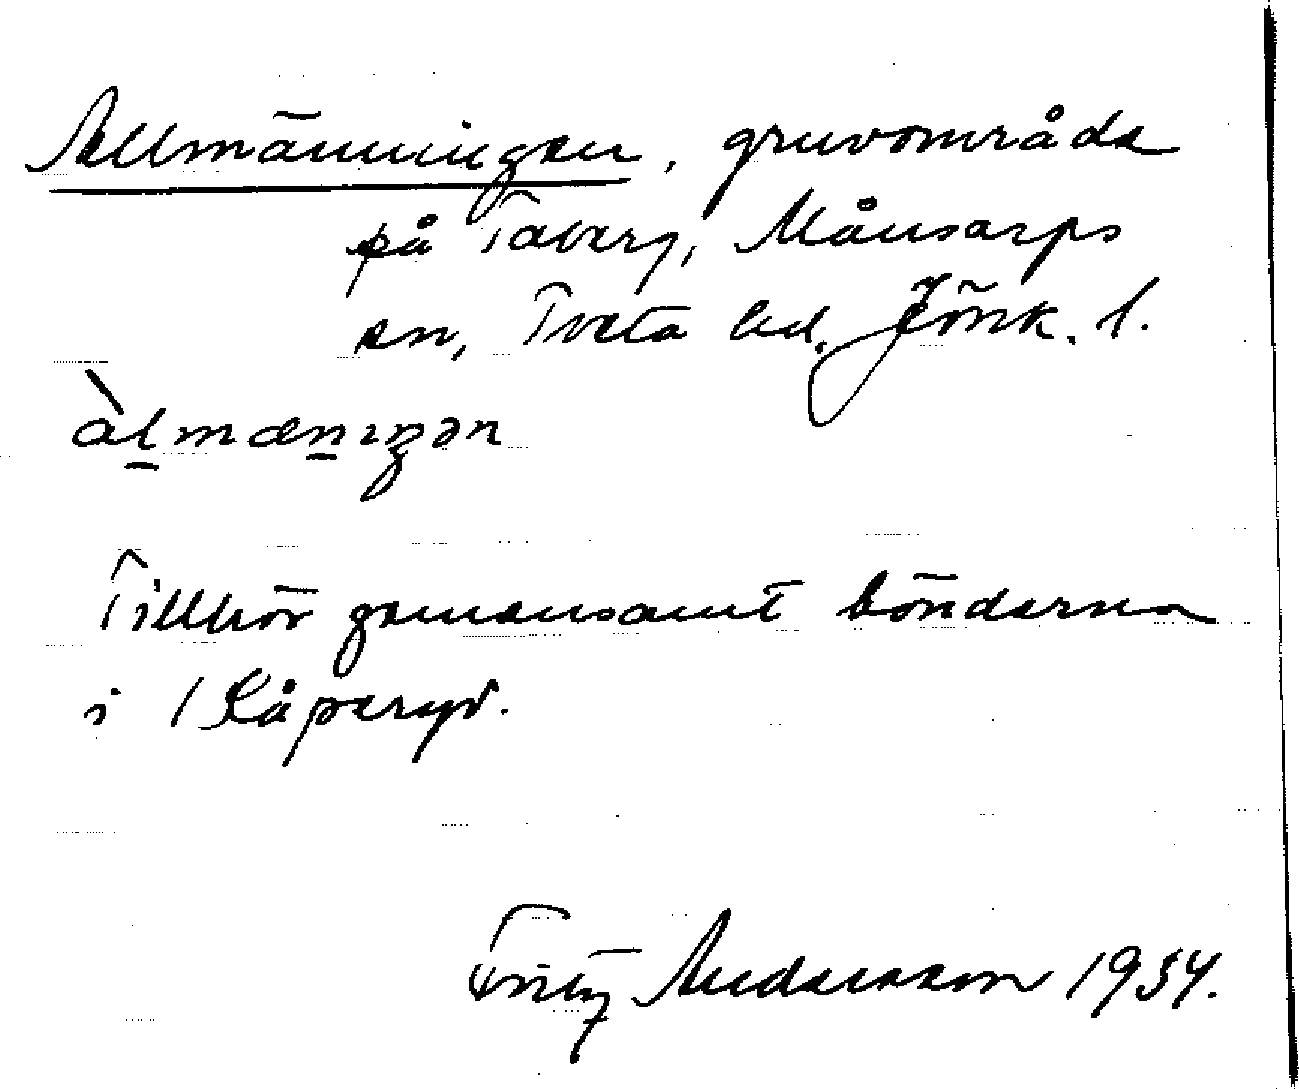 Allmänningen, gruvområde
på Taberg, Månsarps
sn, Tveta hd, Jönk. l.
àl̠mæn̠ıŋən
Tillhör gemensamt bönderna
i Kåperyd.
Fritz Andersson 1934.